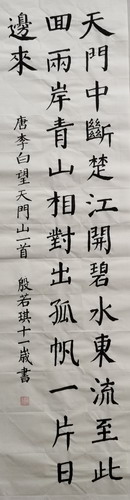 天門中斷楚江開碧水東流至此
回兩岸青山相對出孤帆一片日
邊來
唐李白望天門山一首 殷若琪十一歲書